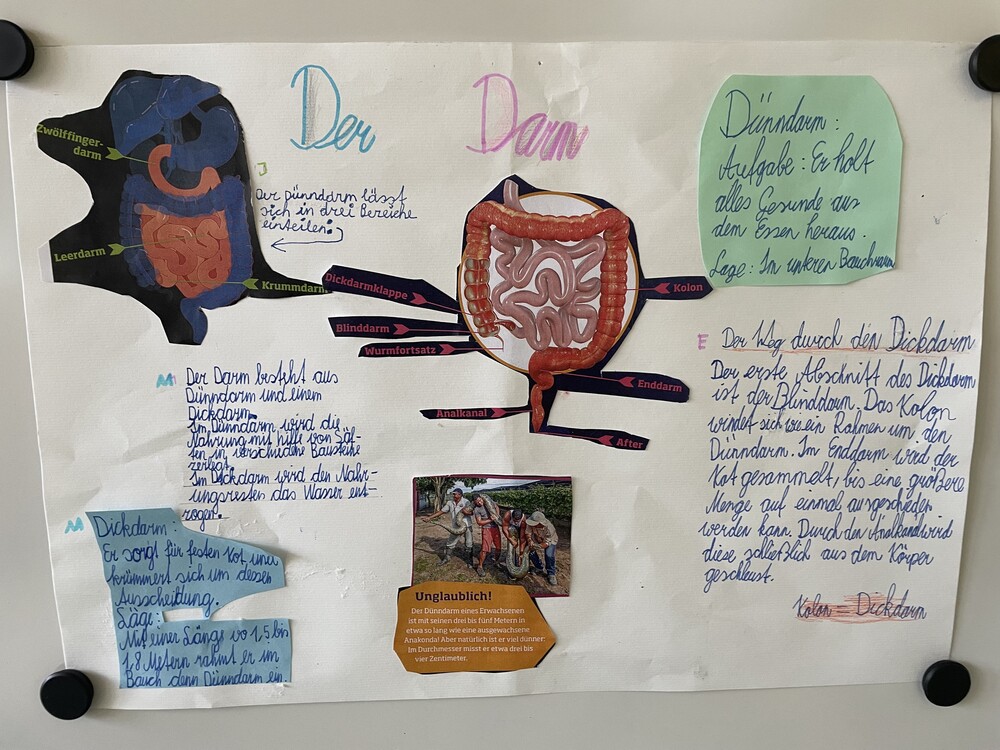 Der Darm
Zwölffinger-
darm
Leerdarm
Krummdarm
J
Der Dünndarm lässt
sich in drei Bereiche
einteilen:
Dickdarmklappe
Blinddarm
Wurmfortsatz
Analkanal
Kolon
Enddarm
After
Dünndarm:
Aufgabe: Er holt
alles Gesunde aus
dem Essen heraus.
Lage: Im unteren Bauchraum
M
Der Darm besteht aus
Dünndarm und einem
Dickdarm.
Im Dünndarm wird die
Nahrung mit hilfe von Säf-
ten in verschidene Bausteine
zerlegt.
Im Dickdarm wird den Nahr-
ungsresten das Wasser ent-
zogen.
M
Dickdarm:
Er sorgt für festen Kot und
kümmert sich um dessen
Ausscheidung.
Läge:
Mit einer Länge vo 1,5 bis
1,8 Metern rahmt er im
Bauch denn Dünndarm ein.
Unglaublich!
Der Dünndarm eines Erwachsenen
ist mit seinen drei bis fünf Metern in
etwa so lang wie eine ausgewachsene
Anakonda! Aber natürlich ist er viel dünner:
Im Durchmesser misst er etwa drei bis
vier Zentimeter.
E
Der Weg durch den Dickdarm
Der erste Abschnitt des Dickdarm
ist der Blinddarm. Das Kolon
windet sich wie ein Rahmen um den
Dünndarm. Im Enddarm wird der
Kot gesammelt, bis eine größere
Menge auf einmal ausgeschieden
werden kann. Durch den Analkanal wird
diese schließlich aus dem Körper
geschleust.
Kolon = Dickdarm